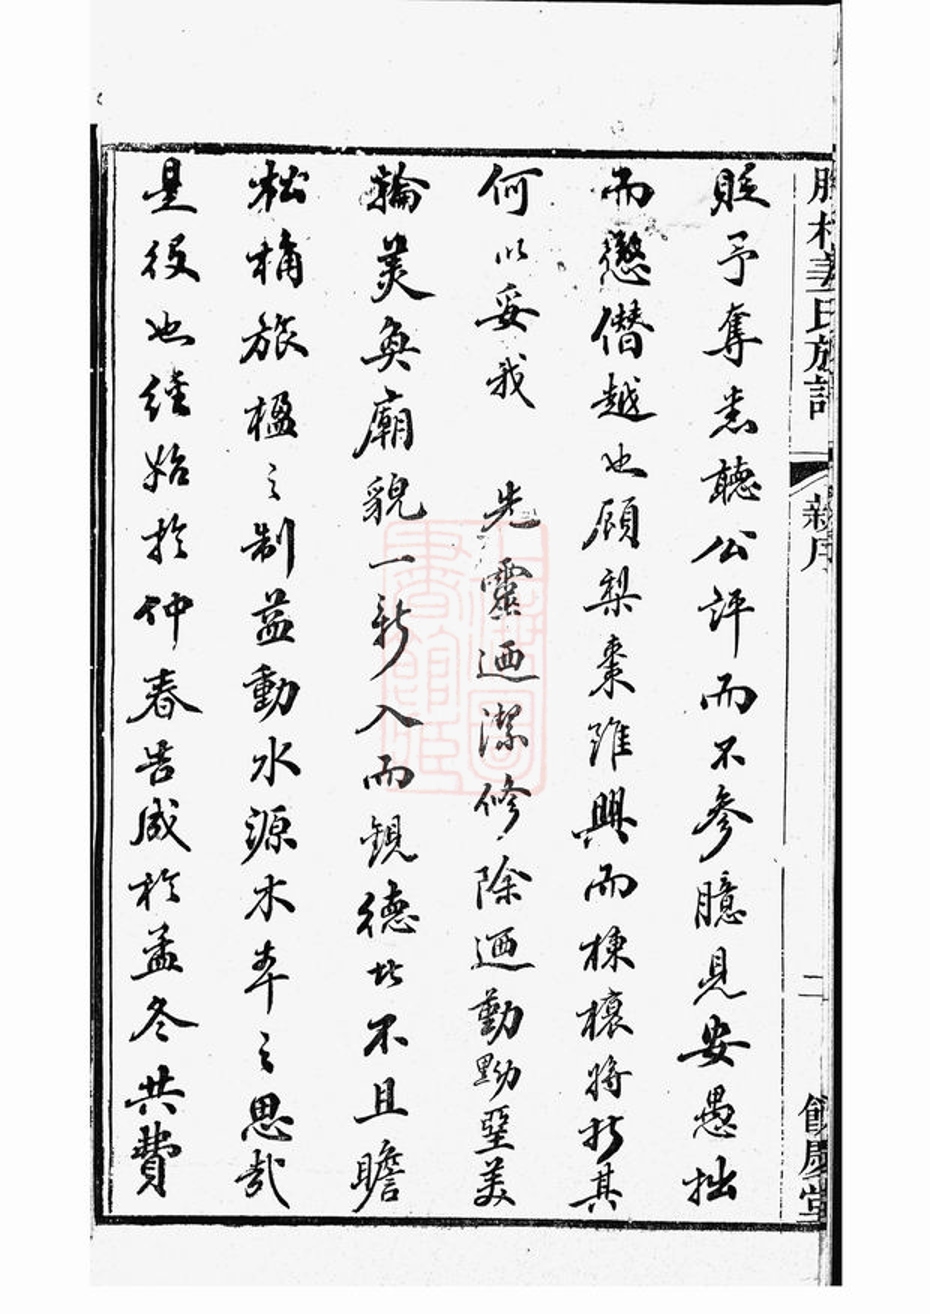 貶予奪悉聽公評而不參臆見安愚拙
而懲僭越也顧梨棗雖興而棟榱將折其
何以妥我　先靈迺潔修除迺勤黝堊美
輪美奐廟貌一新入而覩德此不且瞻
松桷旅楹之制益動水源木本之思哉
是役也經始於仲春告成於孟冬共費
氏族譜
新序
二